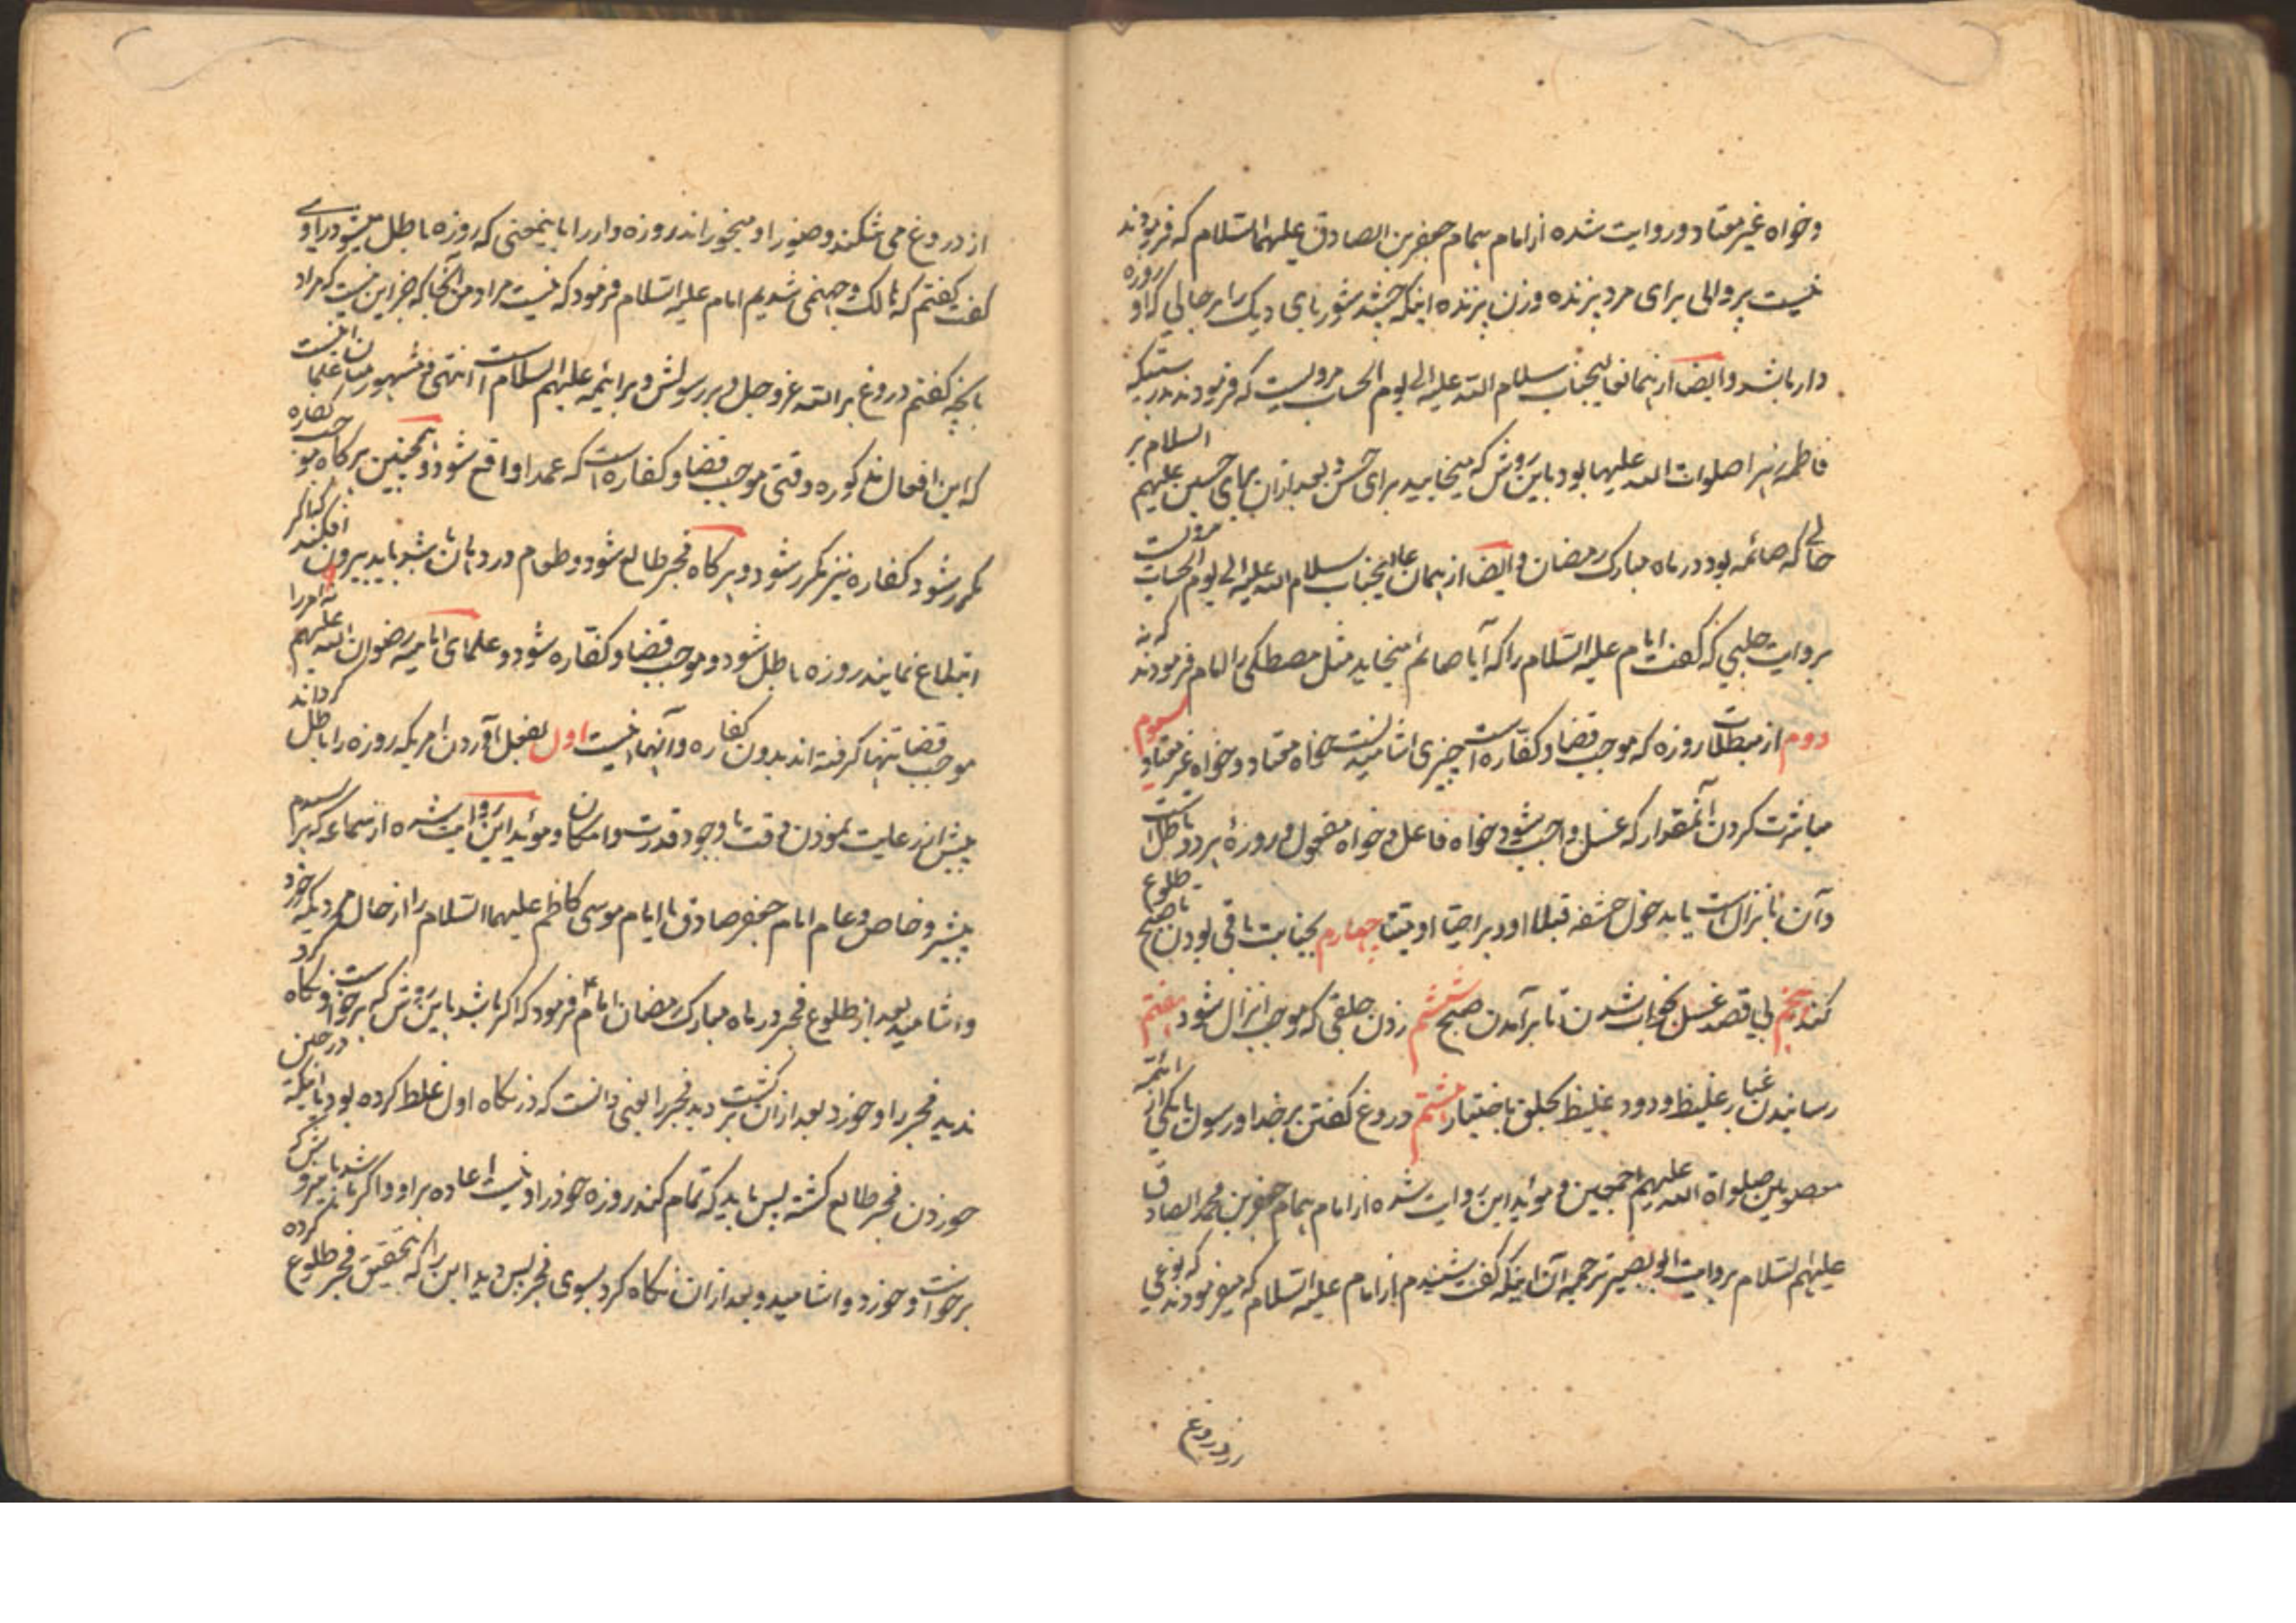 وخواه غیر معتاد و روایت شده از امام همام جعفر بن الصادق علیهما السلام که فرمودند
نیست پروائی برای مرد پزنده و زن پزنده اینکه چشد شوربای دیک را در حالی که او روزه
دار باشد وایضا از همان عالیجناب سلام الله علیه الی یوم الحساب مرویست که فرمودند بدرستیکه
فاطمه زهرا صلوات الله علیها بود باین روش که میخایید برای حسن و بعد از آن برای حسین علیهم السلام در
حالی که صائمه بود در ماه مبارک رمضان و ایضا از همان عالیجناب سلام الله علیه الی یوم الحساب مرویست
بروایت حلبی که کفت امام علیه السلام را که آیا صائم میخاید مثل مصطکی را امام فرمودند که نه
دوم از مبطلات روزه که موجب قضا و کفاره است چیزی اشامیدنست خواه معتاد و خواه غیر معتاد سیوم
مباشرت کردن آنمقدار که غسل واجب شود خواه فاعل و خواه مفعول و روزهٔ هر دو باطل است
وآن بانزال است یا بدخول حشفه قبلا او دبرا حیا او میتا چهارم بجنابت باقی بودن تا طلوع صبح
کند پنجم بی قصد غسل بخواب شدن تا بر آمدن صبح ششم زدن جلقی که موجب انزال شود هفتم
رسانیدن غبار غلیظ و دود غلیظ بحلق باختیار هشتم دروغ کفتن بر خدا و رسول یا یکی از ائمه
معصومین صلواة الله علیهم اجمعین و موئد این روایت شده از امام همام جعفر بن محمد الصادق
علیهم السلام بروایت ابو بصیر ترجمه آن اینکه کفت شنیدم از امام علیه السلام که میفرمودند که نوعی
از دروغ
از دروغ می شکند وضو را و میخوراند روزه دار را باینمعنی که روزه باطل میشود راوی
کفت کفتم که هالک و جهنمی شدیم امام علیه السلام فرمود که نیست مراد من آنجا که جز این نیست که مراد
بانچه کفتم دروغ بر الله عز و جل و بر رسولش و بر ائمه علیهم السلام است انتهی و مشهور میان علما انیست
که این افعال مذکوره وقتی موجب قضا و کفاره است که عمدا واقع شود و همچنین هر کاه موجب کفاره
مکرر شود کفاره نیز مکرر شود و هر کاه فجر طالع شود و طعام در دهان باشد باید بیرون افکند که اکر
ابتلاع نمایند روزه باطل شود و موجب قضا و کفاره شود و علمای امامیه رضوان الله علیهم نه امر را
موجب قضا تنها کرفته اند بدون کفاره و آنها اینست اول بفعل آوردن امریکه روزه را باطل کرداند
پیش از رعایت نمودن وقت با وجود قدرت و امکان و موئد این روایت شده از سماعه که پرسیدم
پیشرو خاص و عام امام جعفر صادق یا امام موسی کاظم علیهما السلام را از حال مردیکه خورد
واشامید بعد از طلوع فجر در ماه مبارک رمضان امام فرمود که اکر باشد باین روش که برخواست و نکاه کرد
ندید فجر را و خورد بعد از آن برکشت دید فجر را یعنی دانست که در نکاه اول غلط کرده بود یا اینکه در حین
خوردن فجر طالع کشته پس باید که تمام کند روزه خود را و نیست اعاده بر او و اکر باشد باین که مرد
برخواست و خورد و اشامید و بعد از ان نکاه کرد بسوی فجر پس دید این را که بتحقیق فجر طلوع کرده